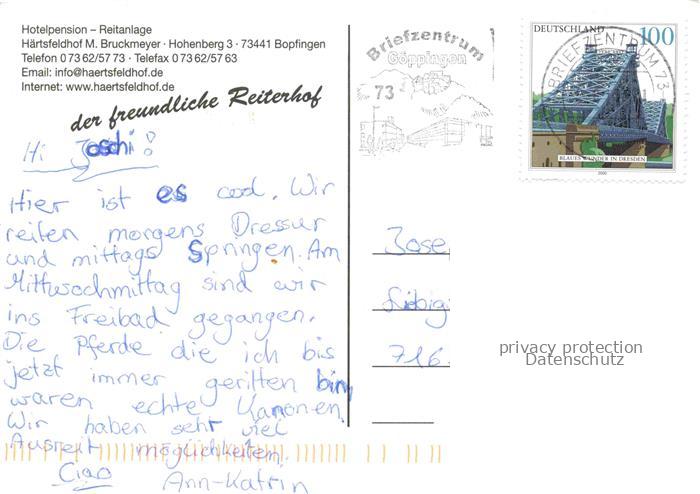 Hotelpension – Reitanlage
Härtsfeldhof M. Bruckmeyer · Hohenberg 3 · 73441 Bopfingen
Telefon 0 73 62/57 73 · Telefax 0 73 62/57 63
Email: info@haertsfeldhof.de
Internet: www.haertsfeldhof.de
der freundliche Reiterhof
Briefzentrum
Göppingen
73
DEUTSCHLAND 100
BRIEFZENTRUM 73
BLAUES WUNDER IN DRESDEN
2000
Hi Joschi!
Hier ist es cool. Wir
reiten morgens Dressur
und mittags Springen. Am
Mittwochmittag sind wir
ins Freibad gegangen.
Die Pferde die ich bis
jetzt immer geritten bin,
waren echte Kanonen.
Wir haben sehr viel
Ausreit möglichkeiten.
Ciao Ann-Katrin
Jose
Liebig
716
privacy protection
Datenschutz